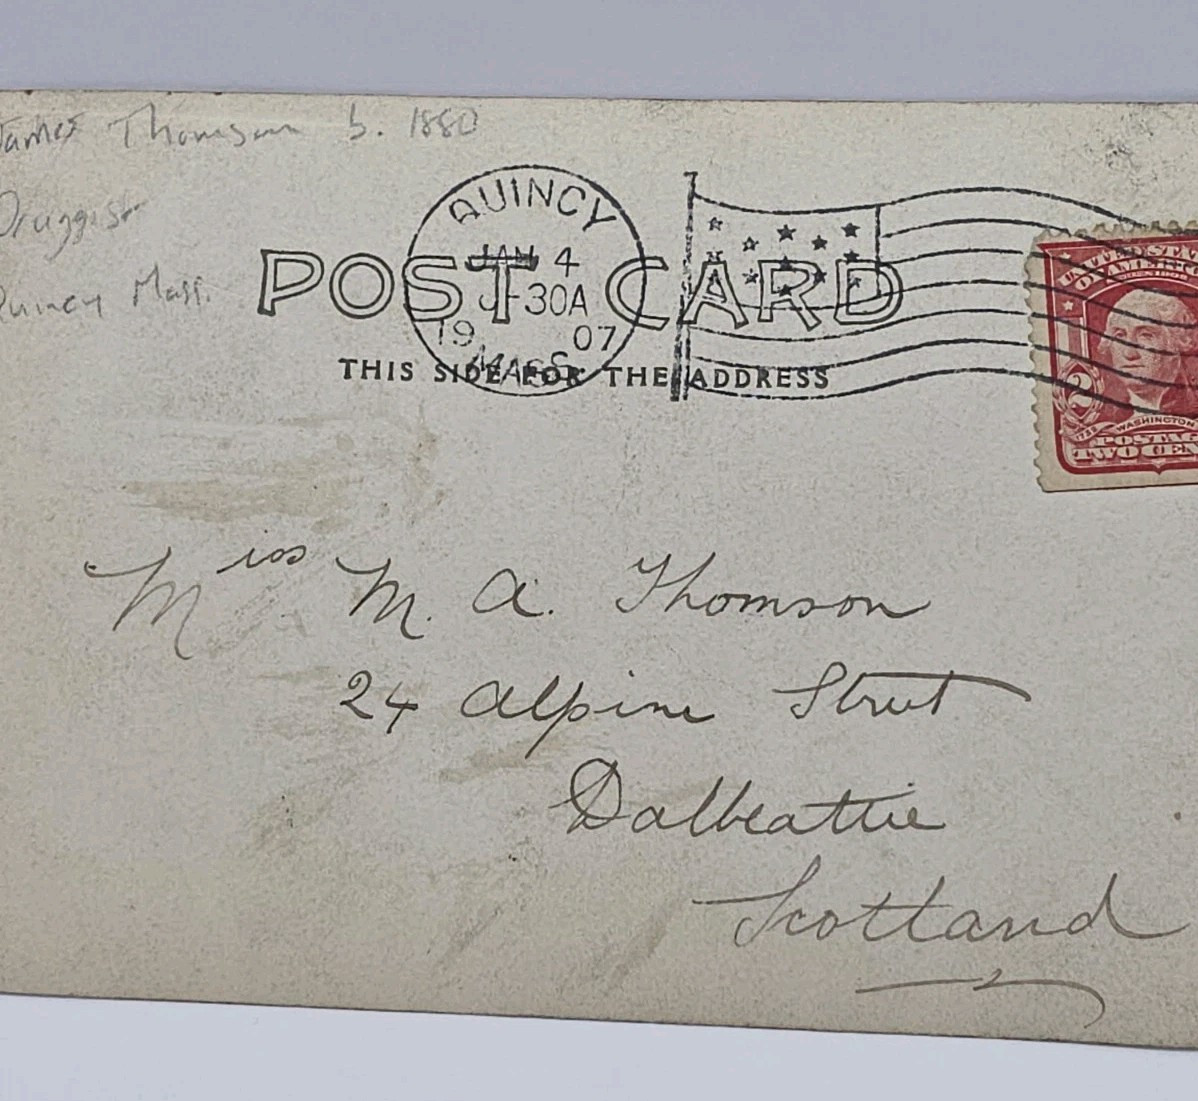 James Thomson b. 1880
Druggist
Quincy Mass.
QUINCY
JAN 4
-30A
19 07
MASS.
POST CARD
THIS SIDE FOR THE ADDRESS
UNITED STATES
OF AMERICA
2
WASHINGTON
POSTAGE
TWO CEN
Miss M. A. Thomson
24 Alpine Street
Dalbeattie
Scotland